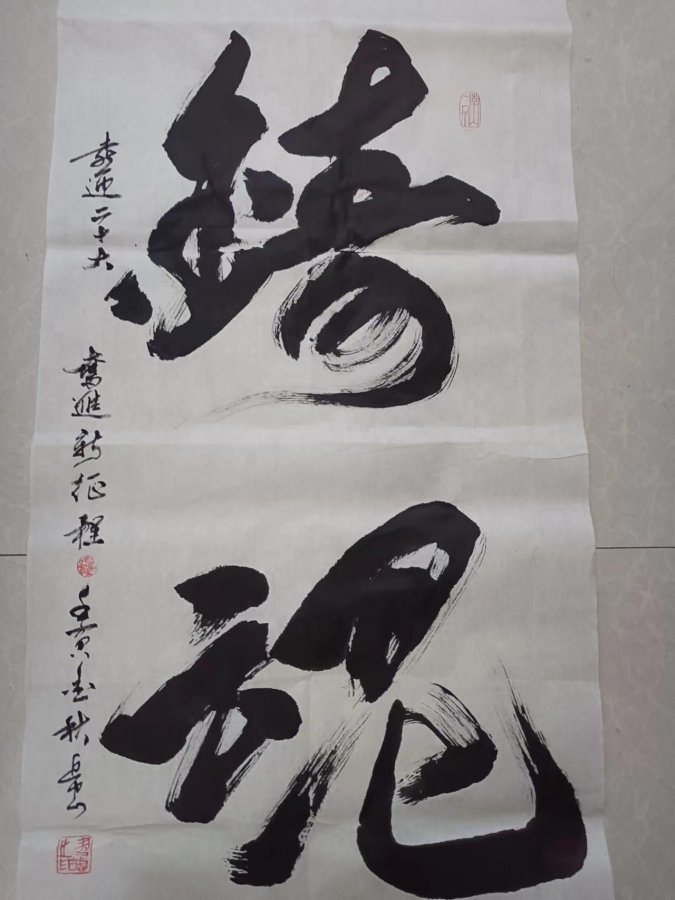 鑄魂
喜迎二十大 奮進新征程
壬寅金秋